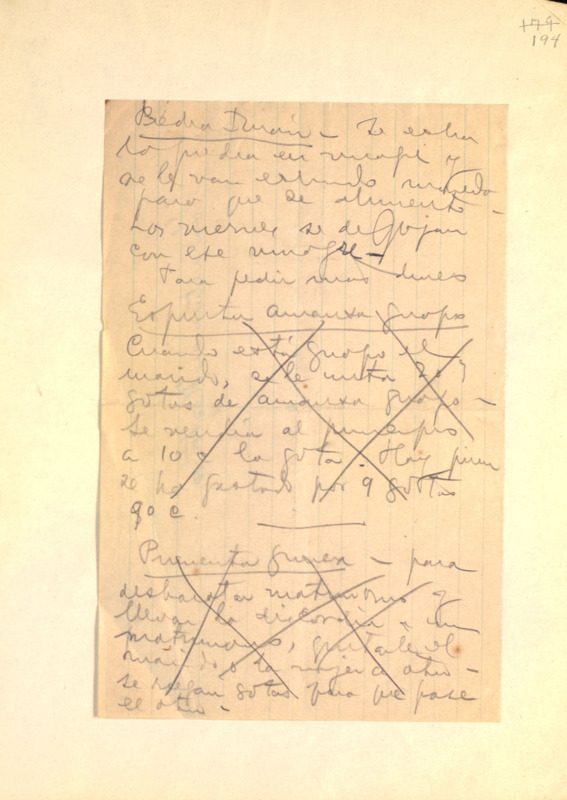 179
194
Piedra Imán - Se echa
la piedra en vinagre y
se le van echando
para que se alimente -
Los viernes se
con ese vinagre -
Para pedir más
Espíritu amansa guapo
Cuando está guapo el
marido, se le
gotas de amansa guapo -
Se vendía al principio
a 10 ¢ la gota. Hay quien
se ha gastado por 9 gotas
90 ¢.
Pimienta guinea - para
desbaratar matrimonios y
llevar la discordia a un
matrimonio,
marido o la mujer a otro -
se riegan gotas para que pase
el otro -